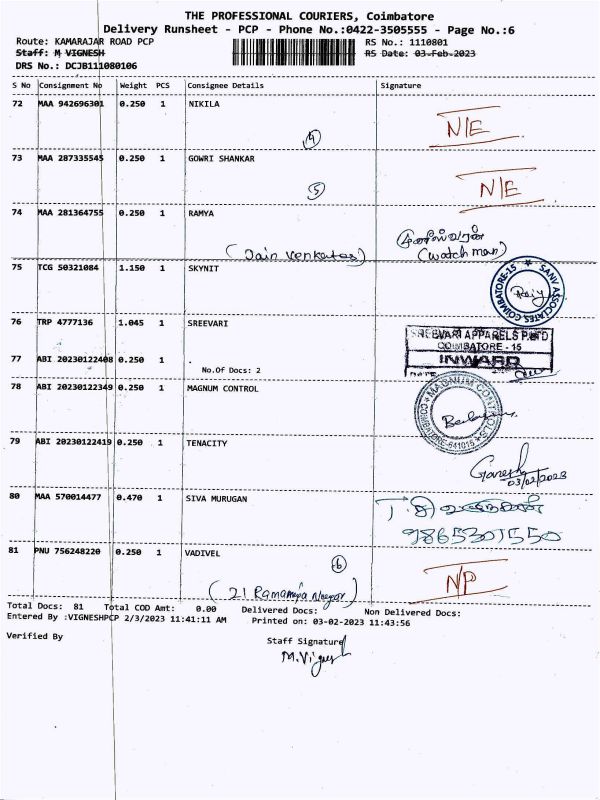 THE PROFESSIONAL COURIERS, Coimbatore
Delivery Runsheet - PCP - Phone No.:0422-3505555 - Page No.:6
Route: KAMARAJAR ROAD PCP RS No.: 1110801
Staff: M VIGNESH RS Date: 03-Feb-2023
DRS No.: DCJB111080106
S No Consignment No Weight PCS Consignee Details Signature
72 MAA 942696301 0.250 1 NIKILA N/E
4
73 MAA 287335545 0.250 1 GOWRI SHANKAR N/E
5
74 MAA 281364755 0.250 1 RAMYA முனீஸ்வரன்
(Jain Venkates) (watch man)
75 TCG 50321084 1.150 1 SKYNIT
SANV ASSOCIATES COIMBATORE-15
76 TRP 4777136 1.045 1 SREEVARI
SREEVARI APPARELS P LTD
COIMBATORE - 15
INWARD
DATE
77 ABI 20230122408 0.250 1 .
No.Of Docs: 2
78 ABI 20230122349 0.250 1 MAGNUM CONTROL
MAGNUM CONTROLS COIMBATORE-641015
79 ABI 20230122419 0.250 1 TENACITY
Ganesh
03/02/2023
80 MAA 570014477 0.470 1 SIVA MURUGAN
9865301550
81 PNU 756248220 0.250 1 VADIVEL N/P
6
(21 Ramamiya Nagar)
Total Docs: 81 Total COD Amt: 0.00 Delivered Docs: Non Delivered Docs:
Entered By :VIGNESHPCP 2/3/2023 11:41:11 AM Printed on: 03-02-2023 11:43:56
Verified By Staff Signature
M.Vignesh